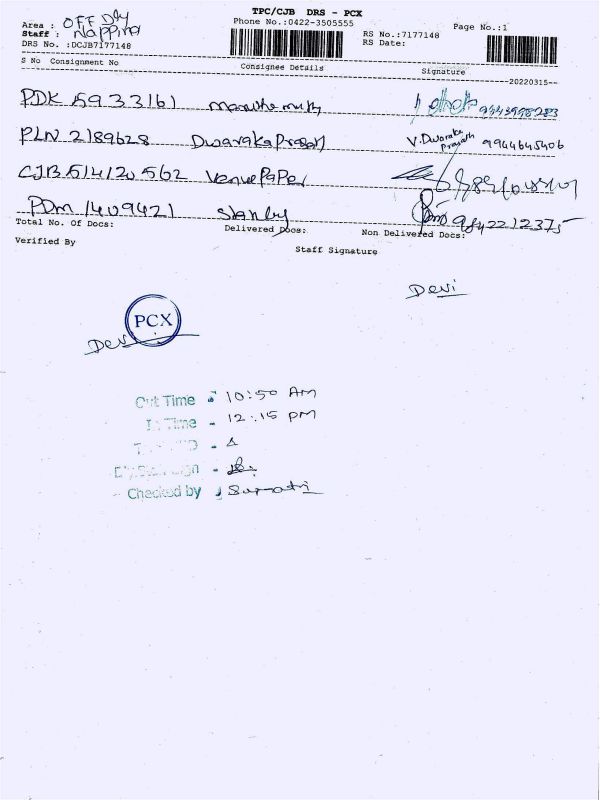 TPC/CJB DRS - PCX
Area : OFF Dly
Phone No.:0422-3505555
Page No.:1
Staff : Nappina
RS No.:7177148
DRS No. :DCJB7177148
RS Date:
S No Consignment No Consignee Details Signature
20220315
PDK 5933161
PLN 2189628 Dwaraka Prasath V. Dwaraka Prasath 9944645406
CJB 514120562 Venue Paper
PDM 1409421 Stanley 9842212375
Total No. Of Docs: Delivered Docs: Non Delivered Docs:
Verified By Staff Signature
Devi
PCX
Devi
Out Time - 10:50 AM
In Time - 12:15 PM
Checked by